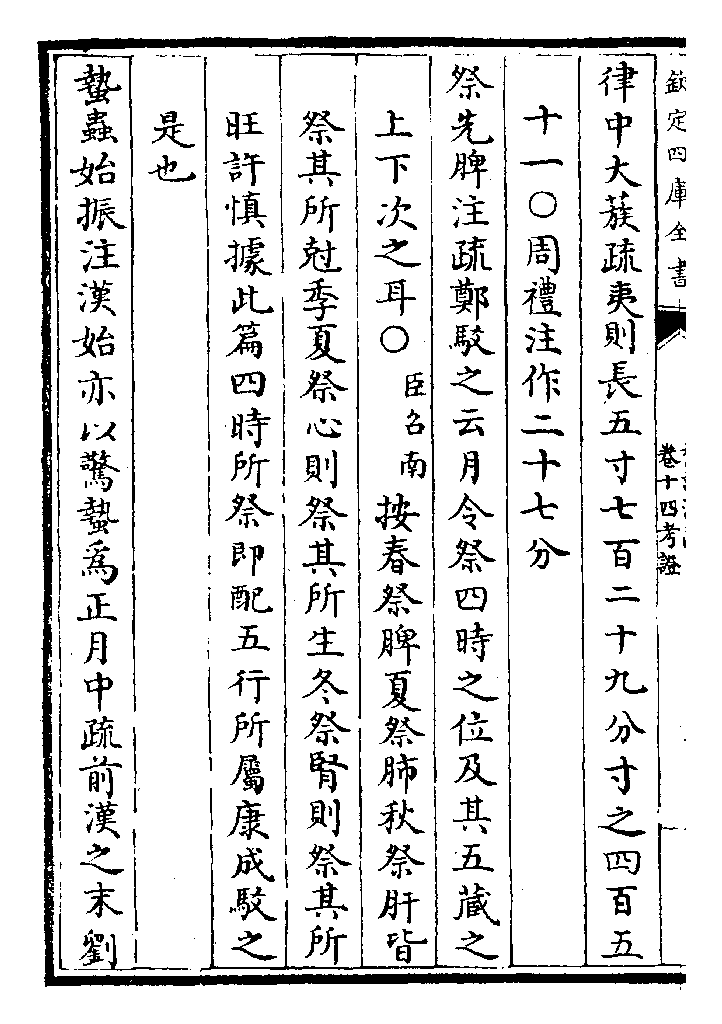 欽定四庫全書
卷十四考證
律中大蔟疏夷則長五寸七百二十九分寸之四百五
十一〇周禮注作二十七分
祭先脾注疏鄭駁之云月令祭四時之位及其五藏之
上下次之耳〇臣召南按春祭脾夏祭肺秋祭肝皆
祭其所尅季夏祭心則祭其所生冬祭腎則祭其所
旺許慎據此篇四時所祭即配五行所屬康成駁之
是也
蟄蟲始振注漢始亦以驚蟄為正月中疏前漢之末劉